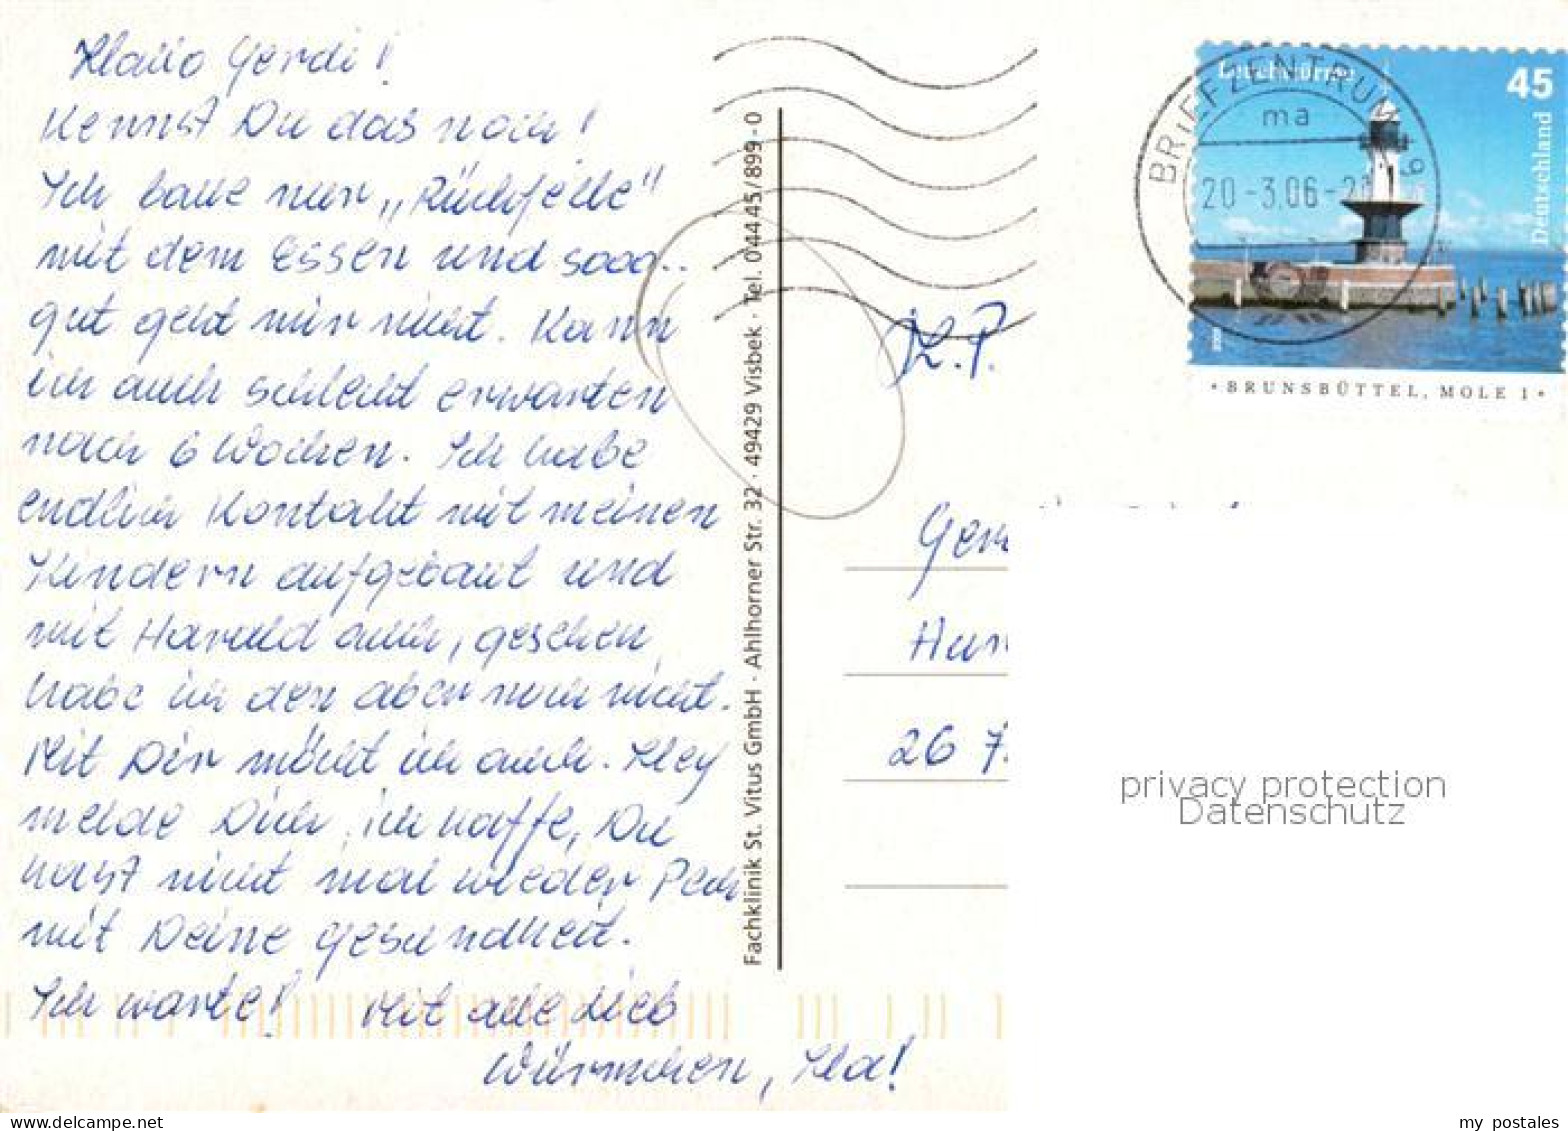 Hallo Gerdi!
Kennst Du das noch!
Ich baue nur „Rückfälle"
mit dem Essen und sooo..
gut geht mir nicht. Kann
ich auch schlecht erwarten
nach 6 Wochen. Ich habe
endlich Kontakt mit meinen
Kindern aufgebaut und
mit Harald auch, gesehen
habe ich den aber noch nicht.
Mit Dir möcht ich auch. Hey
melde Dich, ich hoffe, Du
hast nicht mal wieder Pech
mit Deine gesundheit.
Ich warte! Mit alle Lieb
Würmchen,
Fachklinik St. Vitus GmbH · Ahlhorner Str. 32 · 49429 Visbek · Tel. 04445/899-0
BRIEFZENTRUM
ma
20-3.06-2
Leuchttürme
45
Deutschland
• BRUNSBÜTTEL, MOLE 1 •
Ger
Hun
26 7
privacy protection
Datenschutz
my postales
www.delcampe.net